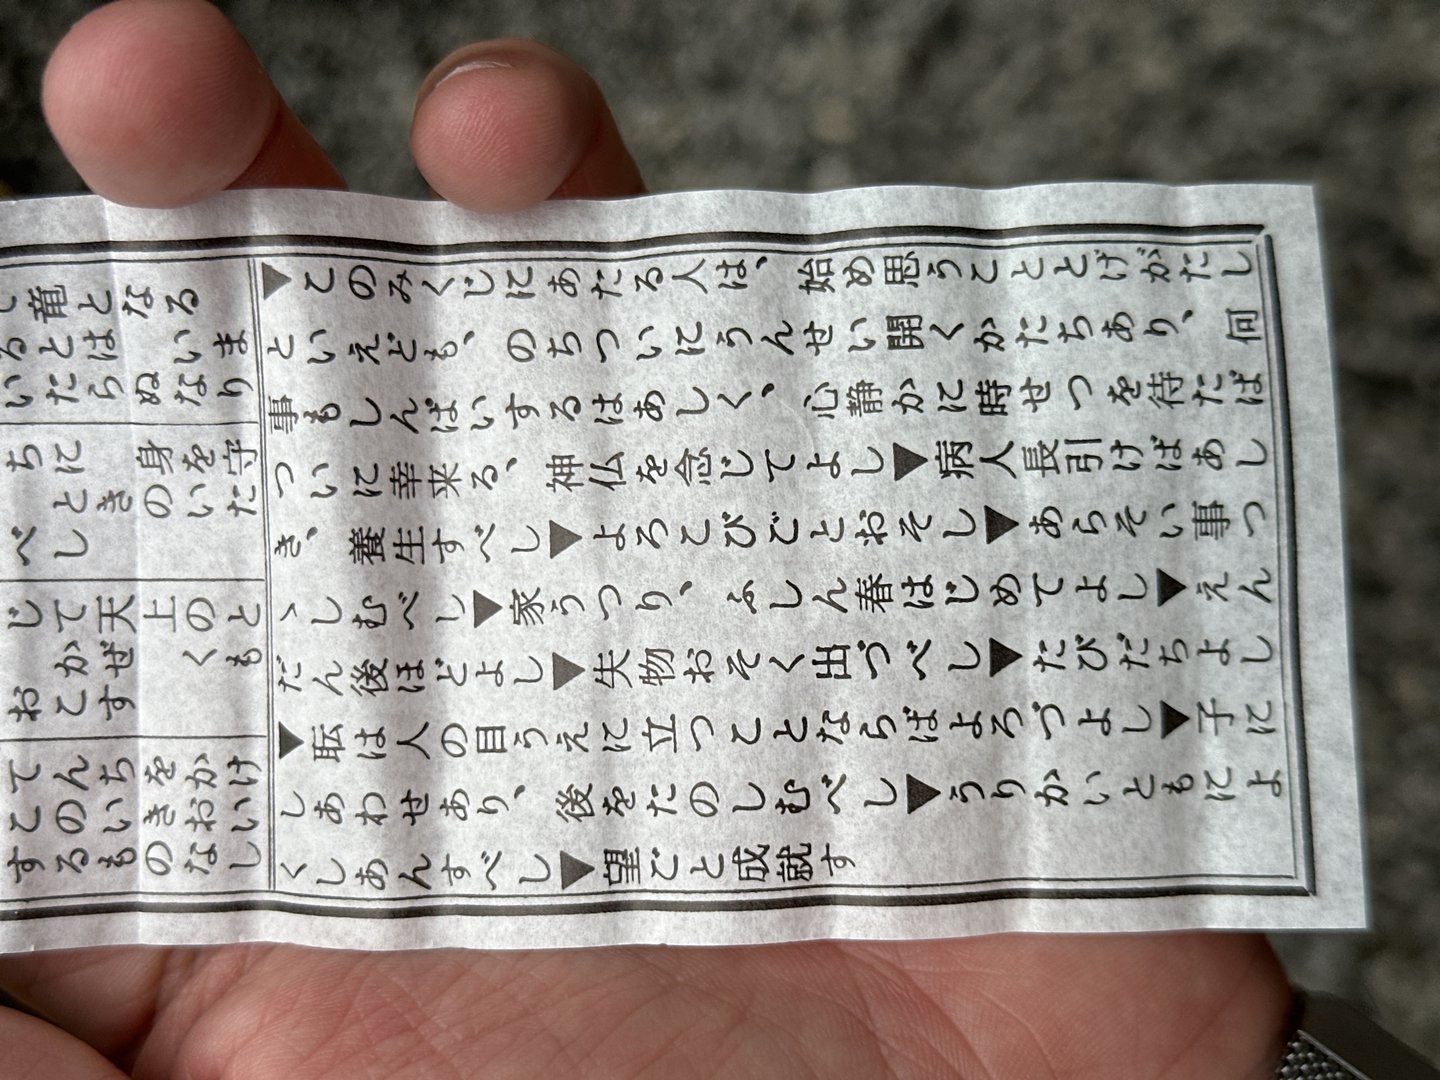 て竜となる
るとは いま
いたらぬなり
ちに 身を守
ときのいた
べし
じて天上のと
かぜ くも
おこす
てんちをかけ
このいきおい
するものなし
▼このみくじにあたる人は、始め思うこととげがたし
といえども、のちついにうんせい開くかたちあり、何
事もしんぱいするはあしく、心静かに時せつを待たば
ついに幸来る、神仏を念じてよし▼病人長引けばあし
き、養生すべし▼よろこびごとおそし▼あらそい事つ
ゝしむべし▼家うつり、ふしん春はじめてよし▼えん
だん後ほどよし▼失物おそく出づべし▼たびだちよし
▼耺は人の目うえに立つことならばよろづよし▼子に
しあわせあり、後をたのしむべし▼うりかいともによ
くしあんすべし▼望ごと成就す